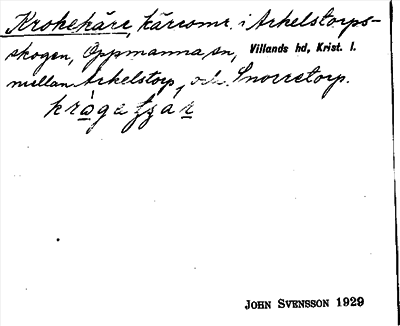 Krokekärr, kärromr. i Arkelstorps-
skogen, Oppmanna sn, Villands hd, Krist. l.
mellan Arkelstorp, och Snorretorp.
JOHN SVENSSON 1929